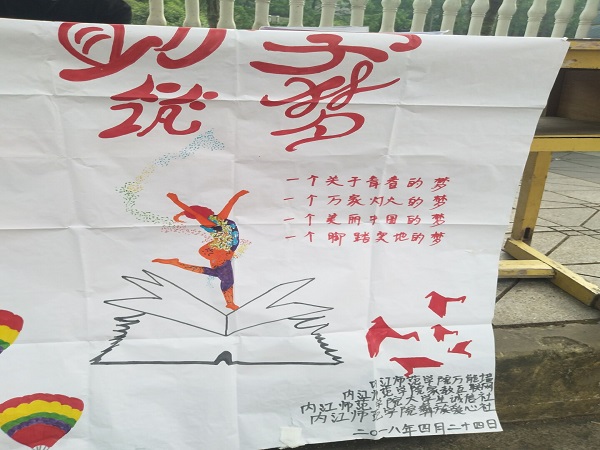 助 予
筑 梦
一个关于青春的梦
一个万家灯火的梦
一个美丽中国的梦
一个脚踏实地的梦
内江师范学院万能
内江师范学院家教互联网
内江师范学院大学生诚信社
内江师范学院彝族爱心社
二〇一八年四月二十四日